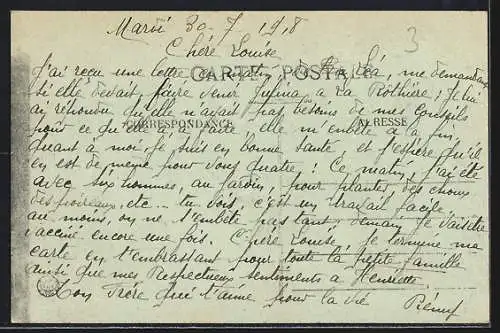 Mardi 30-7 1918
3
Chère Louise
CARTE POSTALE
J'ai reçu une lettre ce matin, de Léa, me demandant
si elle devait faire venir à La Rothière; Je lui
ai répondu qu'elle n'avait pas besoins de mes conseils
CORRESPONDANCE
ADRESSE
pour ce qu'elle elle m'embête à la fin.
quant à moi je suis en bonne santé et j'espère qu'il
en est de même pour vous quatre; Ce matin, j'ai été
avec six hommes, au jardin, pour planter des choux
des poireaux, etc... tu vois, c'est un travail facile,
au moins, on ne s'embête pas tant, demain Je vais être
vacciné encore une fois. Chère Louise, Je termine ma
carte en t'embrassant pour toute la petite famille
ainsi que mes Respectueux sentiments à Henriette
Ton Frère qui t'aime pour la vie Rémy